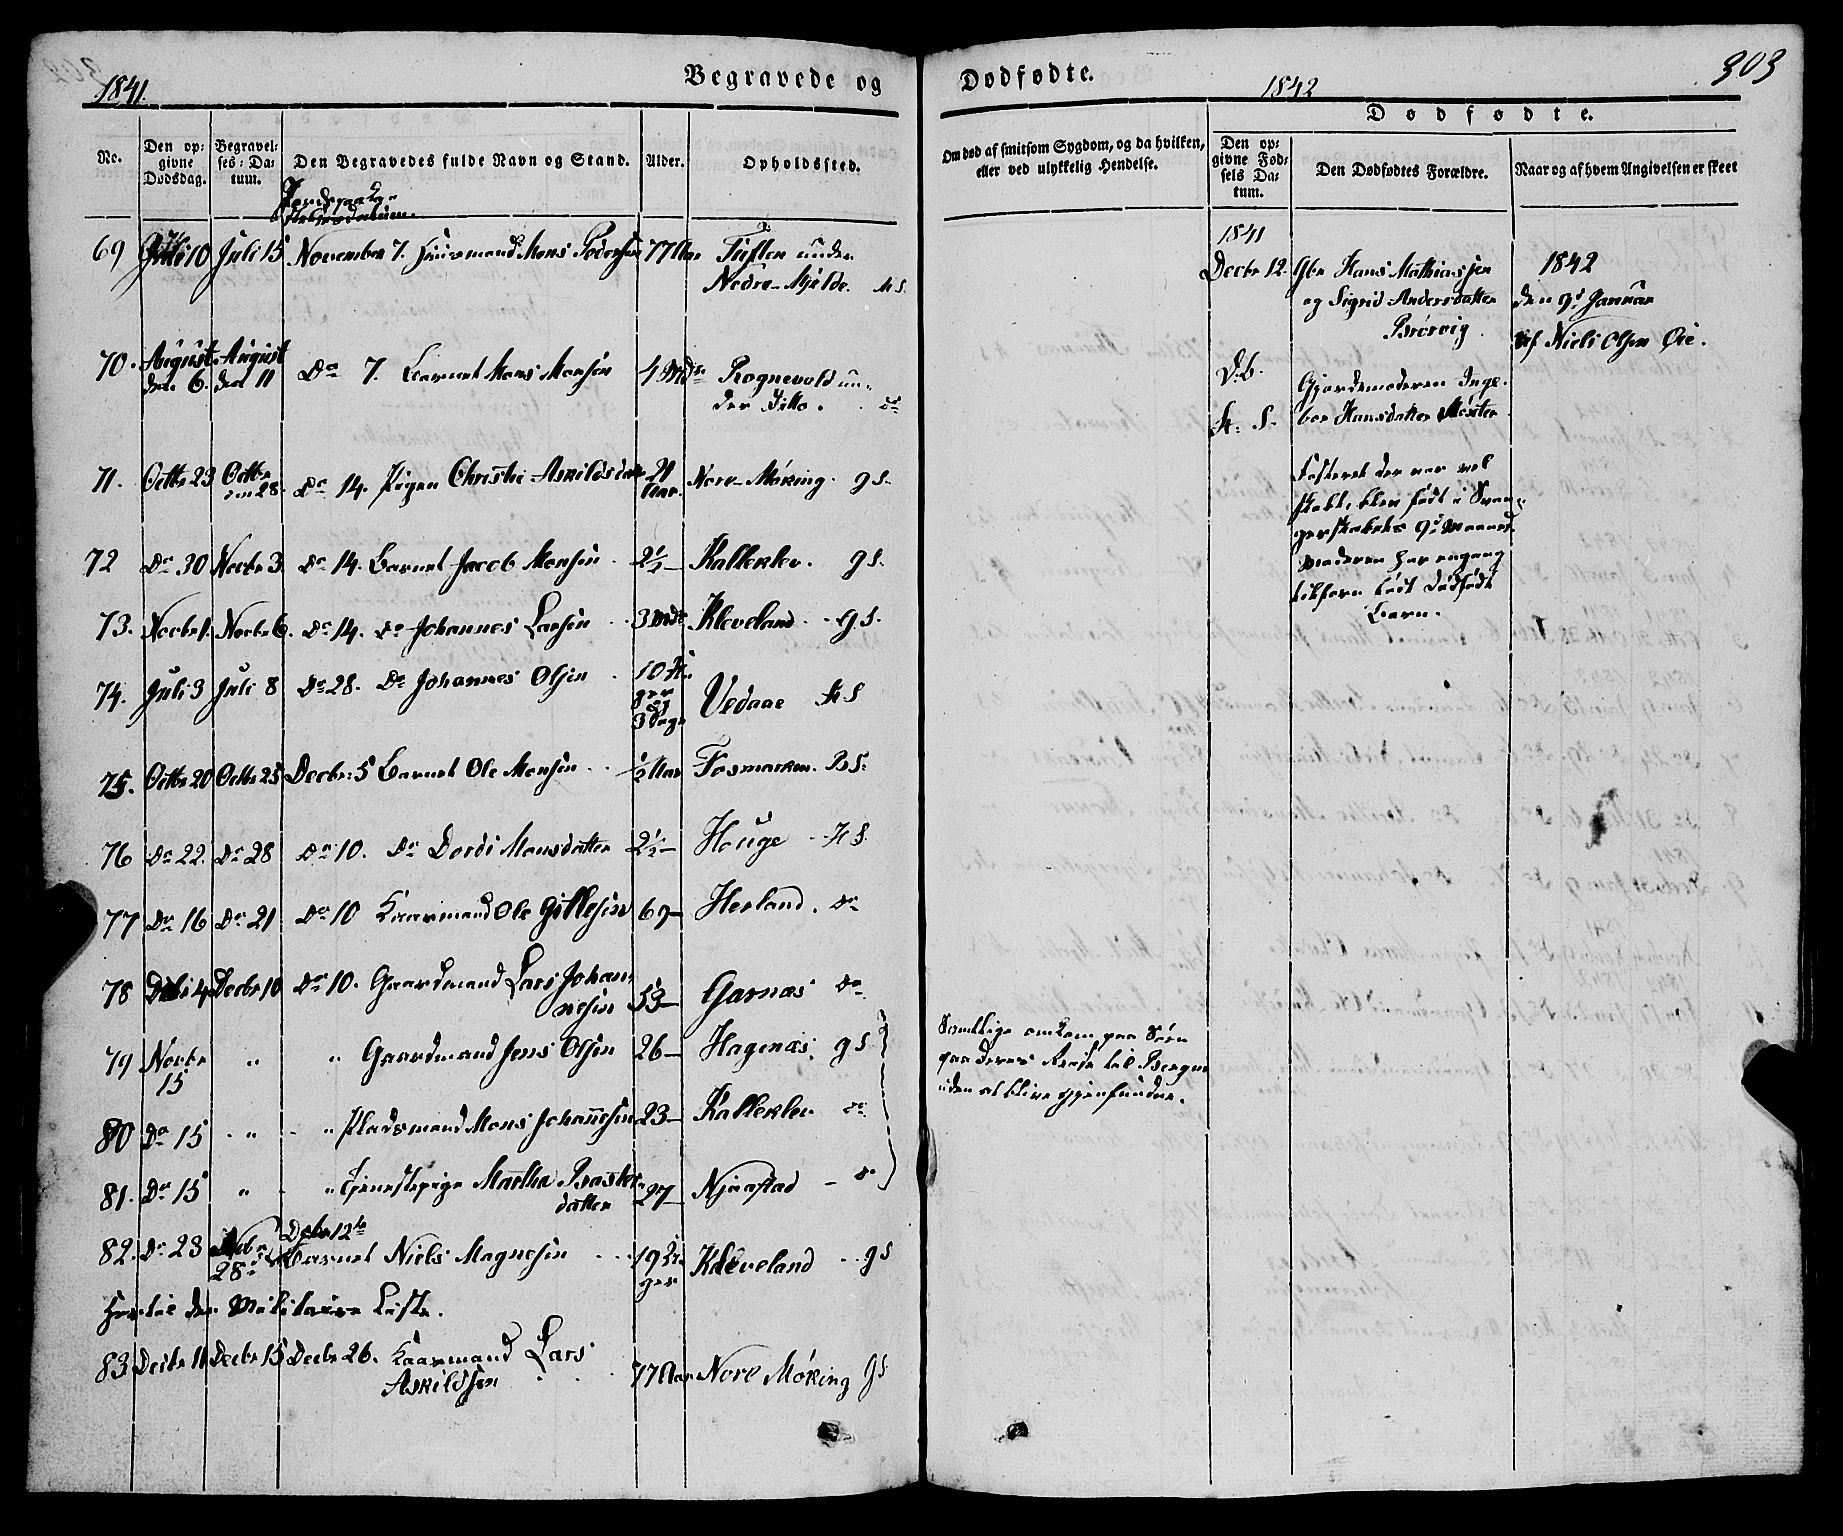 1841.
Begravede og
No.
Den opgivne Dødsdag.
Begravelses-Datum.
Den Begravedes fulde Navn og Stand.
Alder.
Opholdssted.
69 10 Juli 15 November 7. Mons Pedersen 77 Aar under
Nedre Mjelde.
70. August den 6. August den 11 Do 7. Barnet Mons Monsen 4 under Ditto. do
71. Octbr 23 Octbr 28. Do 14. Pigen Christi Askildsdatter 21 Aar. Nore Møking. gS.
72 Do 30 Novbr 3 Do 14. Barnet Jacob Monsen 2½ Kalleklev. gS.
73. Novbr 1. Novbr 6. Do 14. Do Johannes Larsen 3 Kleveland. gS.
74. Juli 3 Juli 8 Do 28. Do Johannes Olsen 3 Dage Vedaae HS
75. Octbr 20 Octbr 25 Decbr: 5 Barnet Ole Monsen ½ Aar Fosmarken. BS.
76 Do 22. Do 28 Do 10. Do Dordi Monsdatter 2½ Houge HS.
77 Do 16 Do 21 Do 10 Kaarmand Ole Gillesen 69 Herland. do
78 4 Decbr 10 Do 10. Gaardmand Lars Johannesen 53 Garnæs do
79 Novbr 15 " " Gaardmand Jens Olsen 26 Hagenæs. gS
80 Do 15 " " Pladsmand Mons Johannesen 23 Kalleklev do
81. Do 15 " " Tjenestepige Martha datter 27 Njaastad do
82. Do 23 28 Decbr 12te
Barnet Niels Magnesen 19 Kleveland gS
den Militaire Liste.
83 Decbr 11 Decbr 15 Decbr 26. Kaarmand Lars
Askildsen 77 Aar Nore Møking gS
Dødfødte.
1842
303
Om død af smitsom Sygdom, og da hvilken,
eller ved ulykkelig Hendelse.
Dødfødte.
Den opgivne Fødsels Datum.
Den Dødfødtes Forældre.
Naar og af hvem Angivelsen er skeet
1841
Decbr 12. Gbr Hans Mathiassen
og Sigrid Andersdatter
Brørvig.
1842
den 9d Januar
af Niels Olsen Øie.
D.b.
H. S.
Gjordemoderen Inge-
bor Hansdatter Møster
Fosteret der var vel
skabt, blev født i Svan-
gerskabets 9d Maaned.
Moderen har engang
tilforn født dødfødt
Barn.
Samtlige omkom paa Søen
paa deres Reise til Bergen
uden at blive gjenfundne.